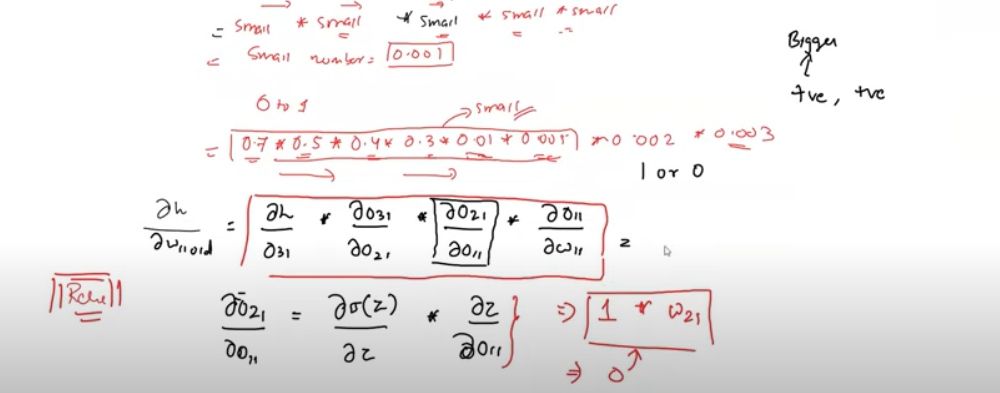 = small * small * small * small * small
= small number = 0.001
Bigger
+ve, +ve
0 to 1
small
= 0.7 * 0.5 * 0.4 * 0.3 * 0.01 * 0.005 * 0.002 * 0.003
1 or 0
∂h/∂w11old = ∂h/∂31 * ∂O31/∂O21 * ∂O21/∂O11 * ∂O11/∂ω11 =
Relu
∂O21/∂O11 = ∂σ(z)/∂z * ∂z/∂O11 ⇒ 1 * ω21
⇒ 0